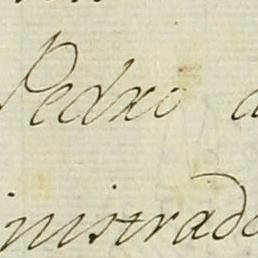 Pedro d
inistrado